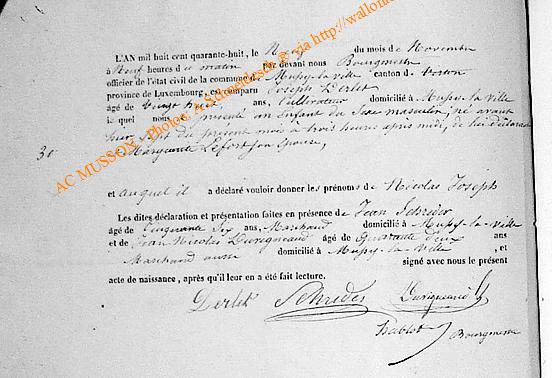 L'AN mil huit cent quarante-huit, le Neuf du mois de Novembre
à Neuf heures du matin par devant nous Bourgmestre
officier de l'état civil de la commune de Mussy-la-Ville canton de Virton
province de Luxembourg, est comparu Joseph Derlet
âgé de Vingt huit ans, Cultivateur domicilié à Mussy-la-Ville
lequel nous a présenté un Enfant du Sexe masculin, né avant
hier, sept du présent mois à trois heures après midi, de lui déclarant
et Marguerite Lefort son Epouse,
30
et auquel il a déclaré vouloir donner les prénoms de Nicolas Joseph
Les dites déclaration et présentation faites en présence de Jean Schréder
âgé de Cinquante Six ans, Marchand domicilié à Mussy-la-Ville
et de Jean Nicolas âgé de Quarante deux ans
Marchand aussi domicilié à Mussy-la-Ville, et
signé avec nous le présent
acte de naissance, après qu'il leur en a été fait lecture.
Derlet Schréder
Bourgmestre
AC MUSSON, Photos via http://wallon